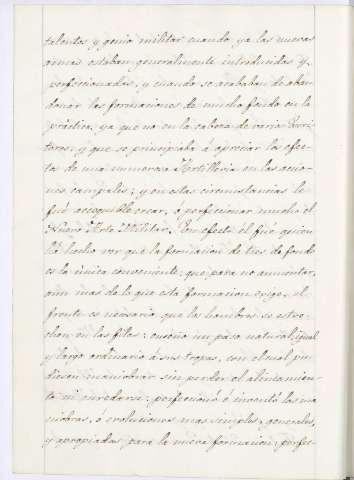 talentos y genio militar cuando ya las nuevas
armas estaban generalmente introducidas y
perfeccionadas, y cuando se acababan de aban
donar las formaciones de mucho fondo en la
práctica, ya que no en la cabeza de varios Escri-
tores, y que se principiaba á apreciar los efec-
tos de una numerosa Artilleria en las accio-
nes campales; y en estas circunstancias le
fué accequible crear, ó perfeccionar mucho el
Nuevo Arte Militar. En efecto él fué quien
há hecho ver que la formacion de tres de fondo
es la única conveniente: que para no aumentar
aun mas de lo que esta formacion exige, el
frente es necesario que los hombres se estre-
chen en las filas: enseñó un paso natural, igual
y largo ordinario á sus tropas, con el cual pu-
diesen maniobrar sin perder el alineamien-
to ni enredarse: perfeccionó ó inventó las ma
niobras, ó evoluciones mas simples, generales,
y apropiadas para la nueva formacion: perfec-